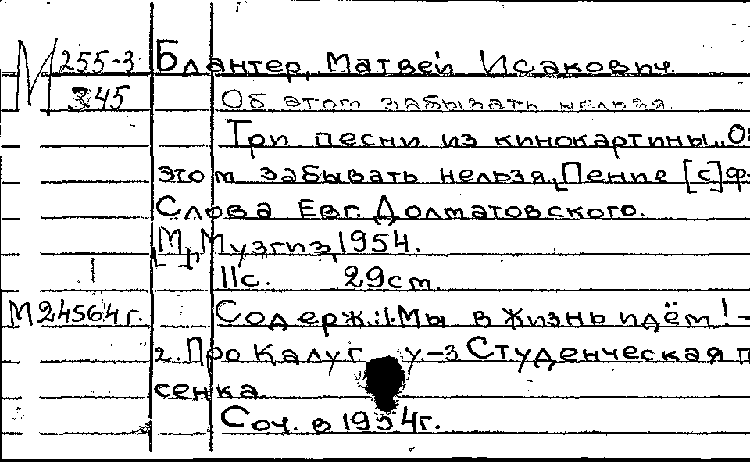 М 255-3 Блантер, Матвей Исакович
345 Об этом забывать нельзя.
Три песни из кинокартины „Об
этом забывать нельзя. Пение [с] ф-
Слова Евг. Долматовского.
[М.], Музгиз, 1954.
11с. 29см.
1
М24564г. Содерж.: 1. Мы в жизнь идём! -
2. Про Калуг у - 3 Студенческая п
сенка
Соч. в 1954г.